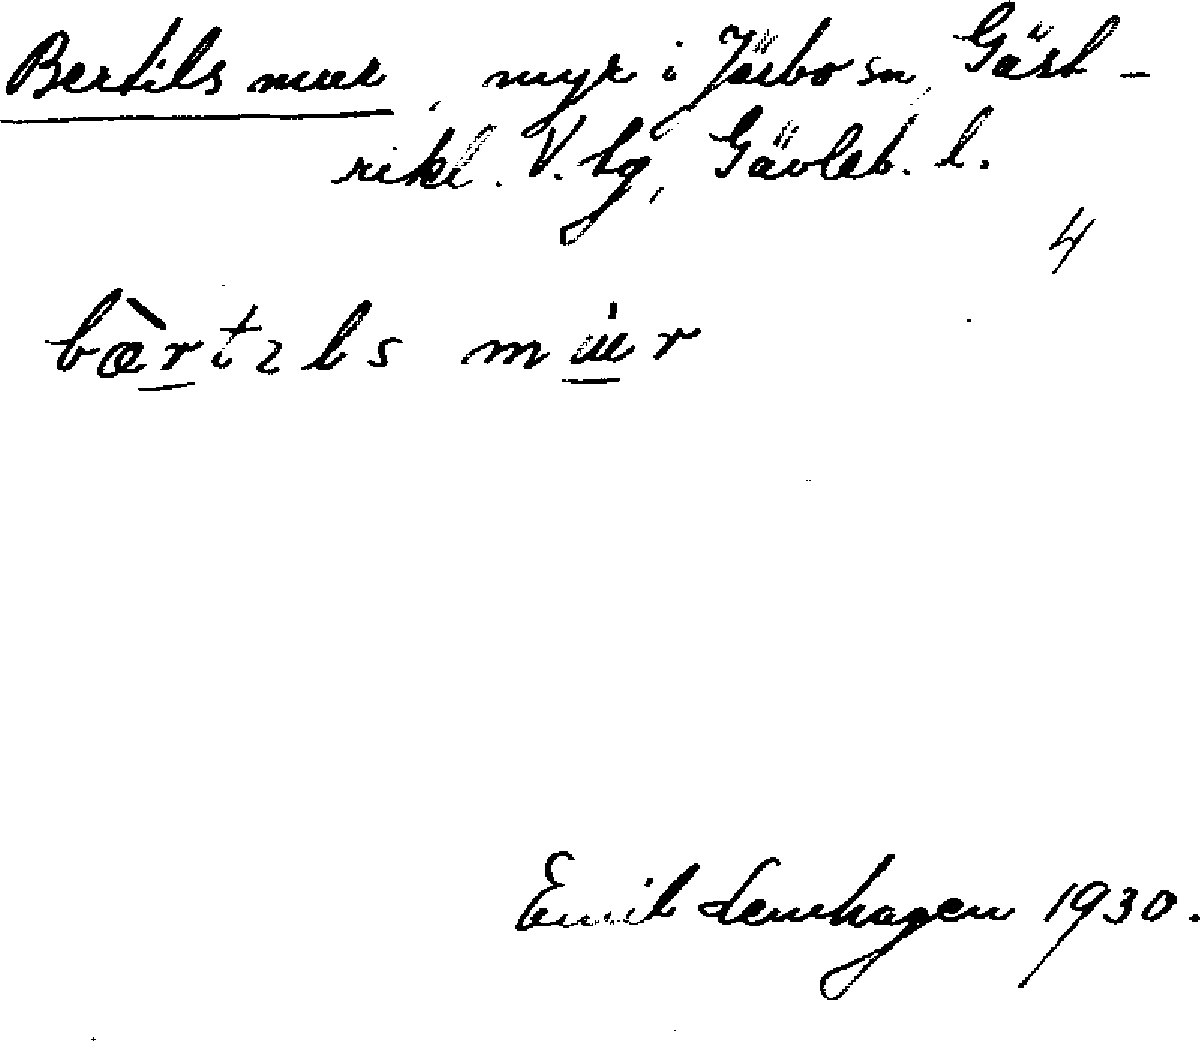 Bertils mur, myr i Järbo sn, Gäst-
rikl. V. tg, Gävleb. l.
4
bæ̀rtɩls mu̇r
Emil Lenhagen 1930.